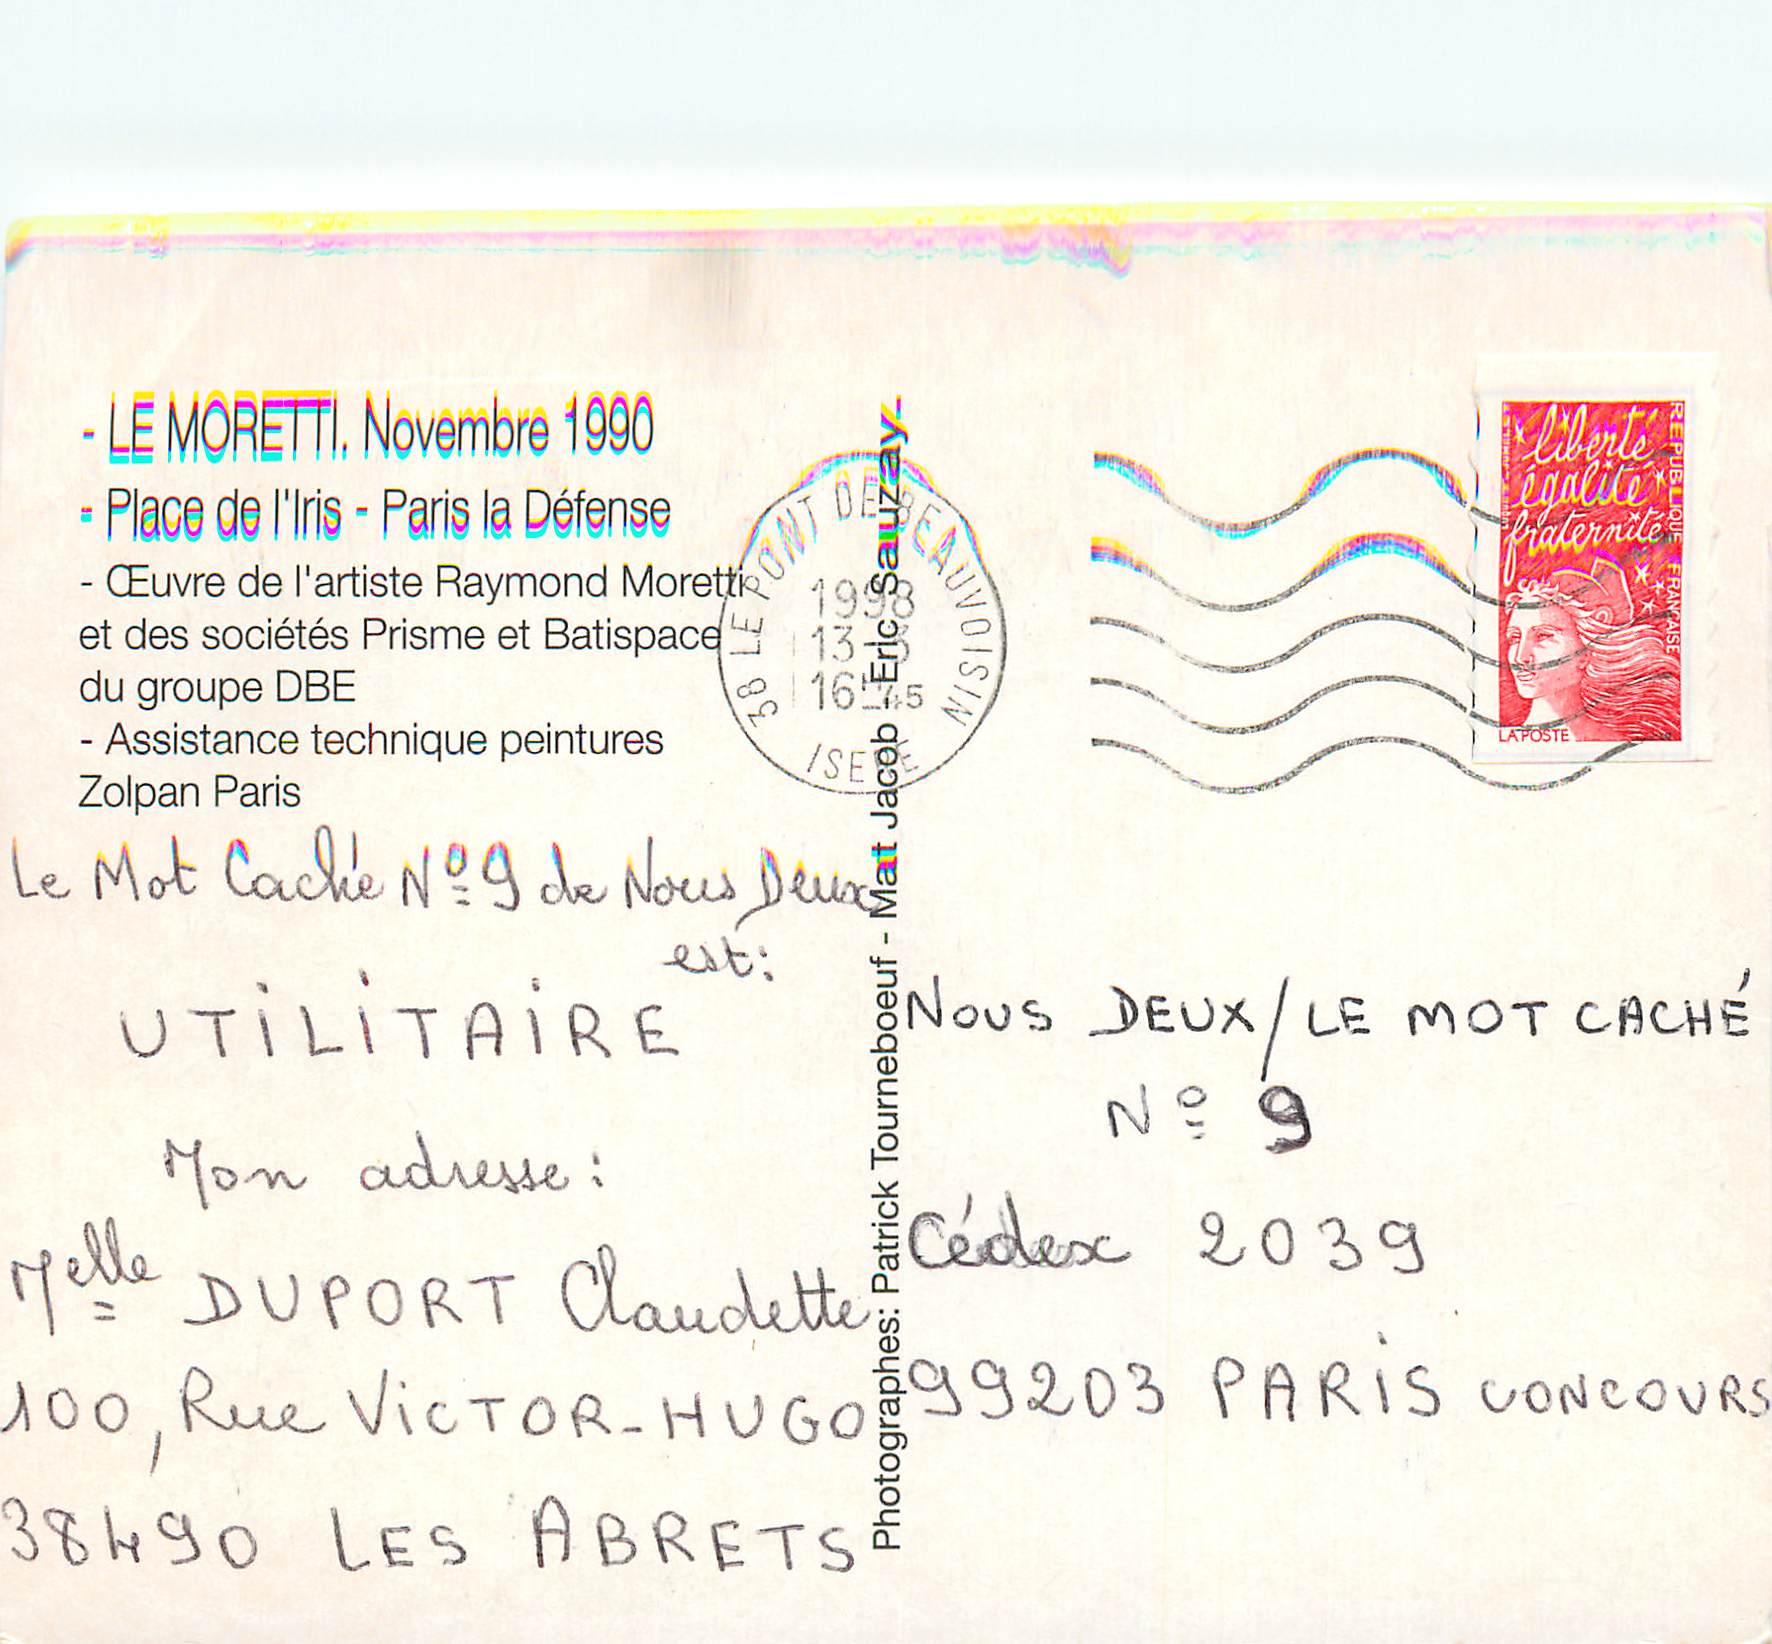 - LE MORETTI. Novembre 1990
- Place de l'Iris - Paris la Défense
- Œuvre de l'artiste Raymond Moretti
et des sociétés Prisme et Batispace
du groupe DBE
- Assistance technique peintures
Zolpan Paris
Le Mot Caché N° 9 de Nous Deux
est:
UTILITAIRE
Mon adresse:
Melle DUPORT Claudette
100, Rue VICTOR-HUGO
38490 LES ABRETS
Photographes: Patrick Tourneboeuf - Mat Jacob - Eric Sauzay.
38 LE PONT DE BEAUVOISIN
1998
13
16 45
ISERE
liberté
égalité
fraternité
REPUBLIQUE FRANÇAISE
LA POSTE
NOUS DEUX/LE MOT CACHÉ
N° 9
Cédex 2039
99203 PARIS CONCOURS